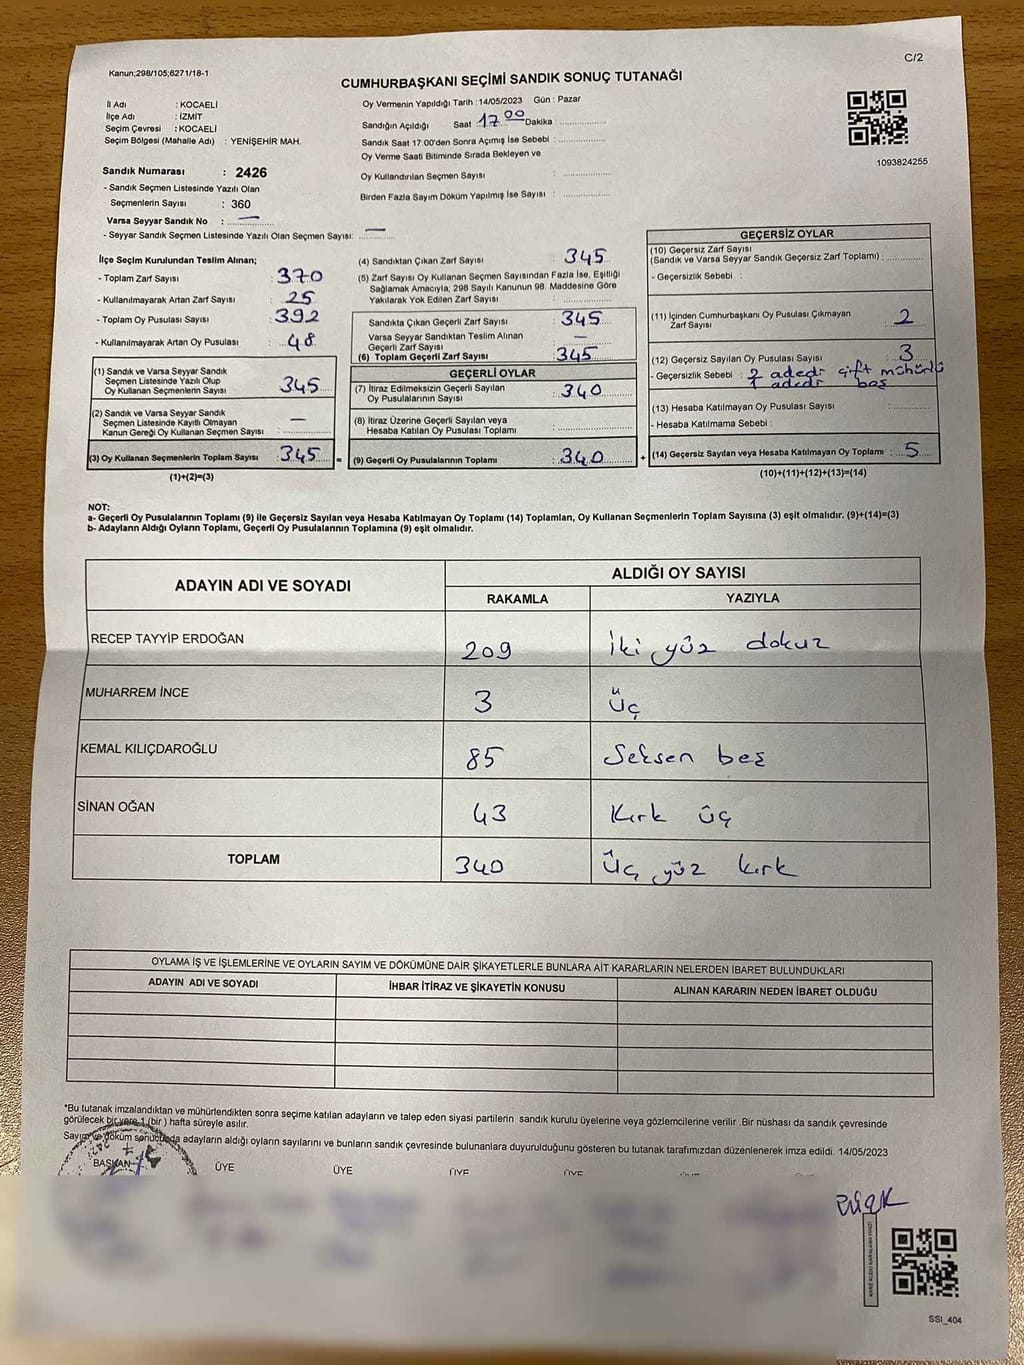 Kanun;298/105;6271/18-1
C/2
CUMHURBAŞKANI SEÇİMİ SANDIK SONUÇ TUTANAĞI
İl Adı : KOCAELİ
İlçe Adı : İZMİT
Seçim Çevresi : KOCAELİ
Seçim Bölgesi (Mahalle Adı) : YENİŞEHİR MAH.
Sandık Numarası : 2426
- Sandık Seçmen Listesinde Yazılı Olan
Seçmenlerin Sayısı : 360
Varsa Seyyar Sandık No : —
- Seyyar Sandık Seçmen Listesinde Yazılı Olan Seçmen Sayısı: —
Oy Vermenin Yapıldığı Tarih : 14/05/2023 Gün : Pazar
Sandığın Açıldığı Saat : 17 00 Dakika :
Sandık Saat 17.00'den Sonra Açımış İse Sebebi :
Oy Verme Saati Bitiminde Sırada Bekleyen ve
Oy Kullandırılan Seçmen Sayısı :
Birden Fazla Sayım Döküm Yapılmış İse Sayısı :
1093824255
İlçe Seçim Kurulundan Teslim Alınan;
- Toplam Zarf Sayısı : 370
- Kullanılmayarak Artan Zarf Sayısı : 25
- Toplam Oy Pusulası Sayısı : 392
- Kullanılmayarak Artan Oy Pusulası : 48
(1) Sandık ve Varsa Seyyar Sandık
Seçmen Listesinde Yazılı Olup
Oy Kullanan Seçmenlerin Sayısı : 345
(2) Sandık ve Varsa Seyyar Sandık
Seçmen Listesinde Kayıtlı Olmayan
Kanun Gereği Oy Kullanan Seçmen Sayısı : —
(3) Oy Kullanan Seçmenlerin Toplam Sayısı : 345
(1)+(2)=(3)
(4) Sandıktan Çıkan Zarf Sayısı : 345
(5) Zarf Sayısı Oy Kullanan Seçmen Sayısından Fazla İse, Eşitliği
Sağlamak Amacıyla; 298 Sayılı Kanunun 98. Maddesine Göre
Yakılarak Yok Edilen Zarf Sayısı :
Sandıkta Çıkan Geçerli Zarf Sayısı : 345
Varsa Seyyar Sandıktan Teslim Alınan
Geçerli Zarf Sayısı : —
(6) Toplam Geçerli Zarf Sayısı : 345
GEÇERLİ OYLAR
(7) İtiraz Edilmeksizin Geçerli Sayılan
Oy Pusulalarının Sayısı : 340
(8) İtiraz Üzerine Geçerli Sayılan veya
Hesaba Katılan Oy Pusulası Toplamı :
= (9) Geçerli Oy Pusulalarının Toplamı : 340
GEÇERSİZ OYLAR
(10) Geçersiz Zarf Sayısı
(Sandık ve Varsa Seyyar Sandık Geçersiz Zarf Toplamı) :
- Geçersizlik Sebebi :
(11) İçinden Cumhurbaşkanı Oy Pusulası Çıkmayan
Zarf Sayısı : 2
(12) Geçersiz Sayılan Oy Pusulası Sayısı : 3
- Geçersizlik Sebebi : 2 adedi çift mühürlü
1 adedi boş
(13) Hesaba Katılmayan Oy Pusulası Sayısı :
- Hesaba Katılmama Sebebi :
+ (14) Geçersiz Sayılan veya Hesaba Katılmayan Oy Toplamı : 5
(10)+(11)+(12)+(13)=(14)
NOT:
a- Geçerli Oy Pusulalarının Toplamı (9) ile Geçersiz Sayılan veya Hesaba Katılmayan Oy Toplamı (14) Toplamları, Oy Kullanan Seçmenlerin Toplam Sayısına (3) eşit olmalıdır. (9)+(14)=(3)
b- Adayların Aldığı Oyların Toplamı, Geçerli Oy Pusulalarının Toplamına (9) eşit olmalıdır.
ADAYIN ADI VE SOYADI
ALDIĞI OY SAYISI
RAKAMLA YAZIYLA
RECEP TAYYİP ERDOĞAN 209 İki yüz dokuz
MUHARREM İNCE 3 Üç
KEMAL KILIÇDAROĞLU 85 Seksen beş
SİNAN OĞAN 43 Kırk üç
TOPLAM 340 Üç yüz kırk
OYLAMA İŞ VE İŞLEMLERİNE VE OYLARIN SAYIM VE DÖKÜMÜNE DAİR ŞİKAYETLERLE BUNLARA AİT KARARLARIN NELERDEN İBARET BULUNDUKLARI
ADAYIN ADI VE SOYADI İHBAR İTİRAZ VE ŞİKAYETİN KONUSU ALINAN KARARIN NEDEN İBARET OLDUĞU
*Bu tutanak imzalandıktan ve mühürlendikten sonra seçime katılan adayların ve talep eden siyasi partilerin sandık kurulu üyelerine veya gözlemcilerine verilir. Bir nüshası da sandık çevresinde
görülecek bir yere 1 (bir ) hafta süreyle asılır.
Sayım ve döküm sonucunda adayların aldığı oyların sayılarını ve bunların sandık çevresinde bulunanlara duyurulduğunu gösteren bu tutanak tarafımızdan düzenlenerek imza edildi. 14/05/2023
BAŞKAN ÜYE ÜYE ÜYE ÜYE
SSI_404